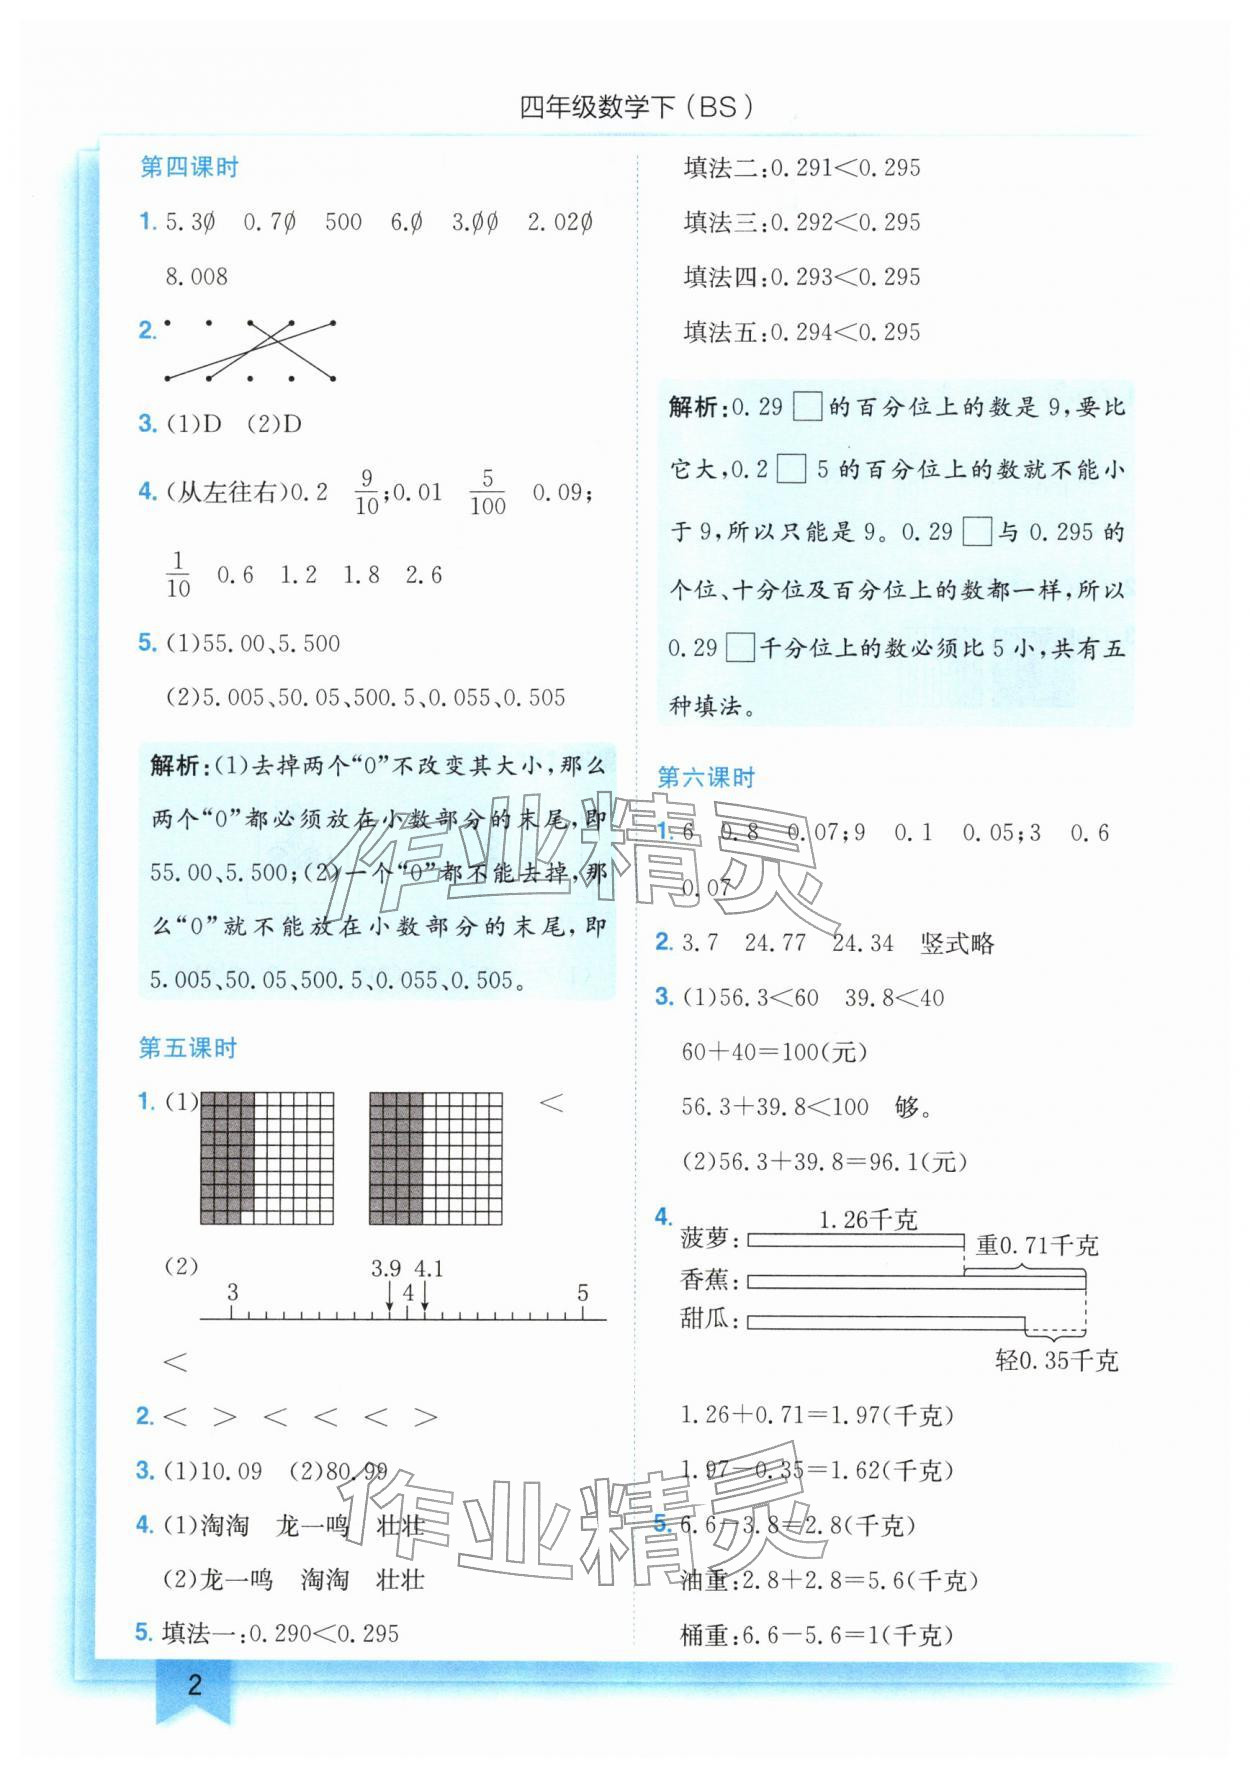 四年级数学下(BS)
第四课时
1. 5.30 0.70 500 6.0 3.00 2.020
8.008
2.
3. (1)D (2)D
4. (从左往右)0.2 9/10;0.01 5/100 0.09;
1/10 0.6 1.2 1.8 2.6
5. (1)55.00、5.500
(2)5.005、50.05、500.5、0.055、0.505
解析:(1)去掉两个“0”不改变其大小,那么
两个“0”都必须放在小数部分的末尾,即
55.00、5.500;(2)一个“0”都不能去掉,那
么“0”就不能放在小数部分的末尾,即
5.005、50.05、500.5、0.055、0.505。
第五课时
1. (1) <
(2) 3.9 4.1
3 4 5
<
2. < > < < < >
3. (1)10.09 (2)80.99
4. (1)淘淘 龙一鸣 壮壮
(2)龙一鸣 淘淘 壮壮
5. 填法一:0.290<0.295
填法二:0.291<0.295
填法三:0.292<0.295
填法四:0.293<0.295
填法五:0.294<0.295
解析:0.29□的百分位上的数是9,要比
它大,0.2□5的百分位上的数就不能小
于9,所以只能是9。0.29□与0.295的
个位、十分位及百分位上的数都一样,所以
0.29□千分位上的数必须比5小,共有五
种填法。
第六课时
1. 6 0.8 0.07;9 0.1 0.05;3 0.6
0.07
2. 3.7 24.77 24.34 竖式略
3. (1)56.3<60 39.8<40
60+40=100(元)
56.3+39.8<100 够。
(2)56.3+39.8=96.1(元)
4. 1.26千克
菠萝: 重0.71千克
香蕉:
甜瓜:
轻0.35千克
1.26+0.71=1.97(千克)
1.97-0.35=1.62(千克)
5. 6.6-3.8=2.8(千克)
油重:2.8+2.8=5.6(千克)
桶重:6.6-5.6=1(千克)
作业精灵
作业精灵
2